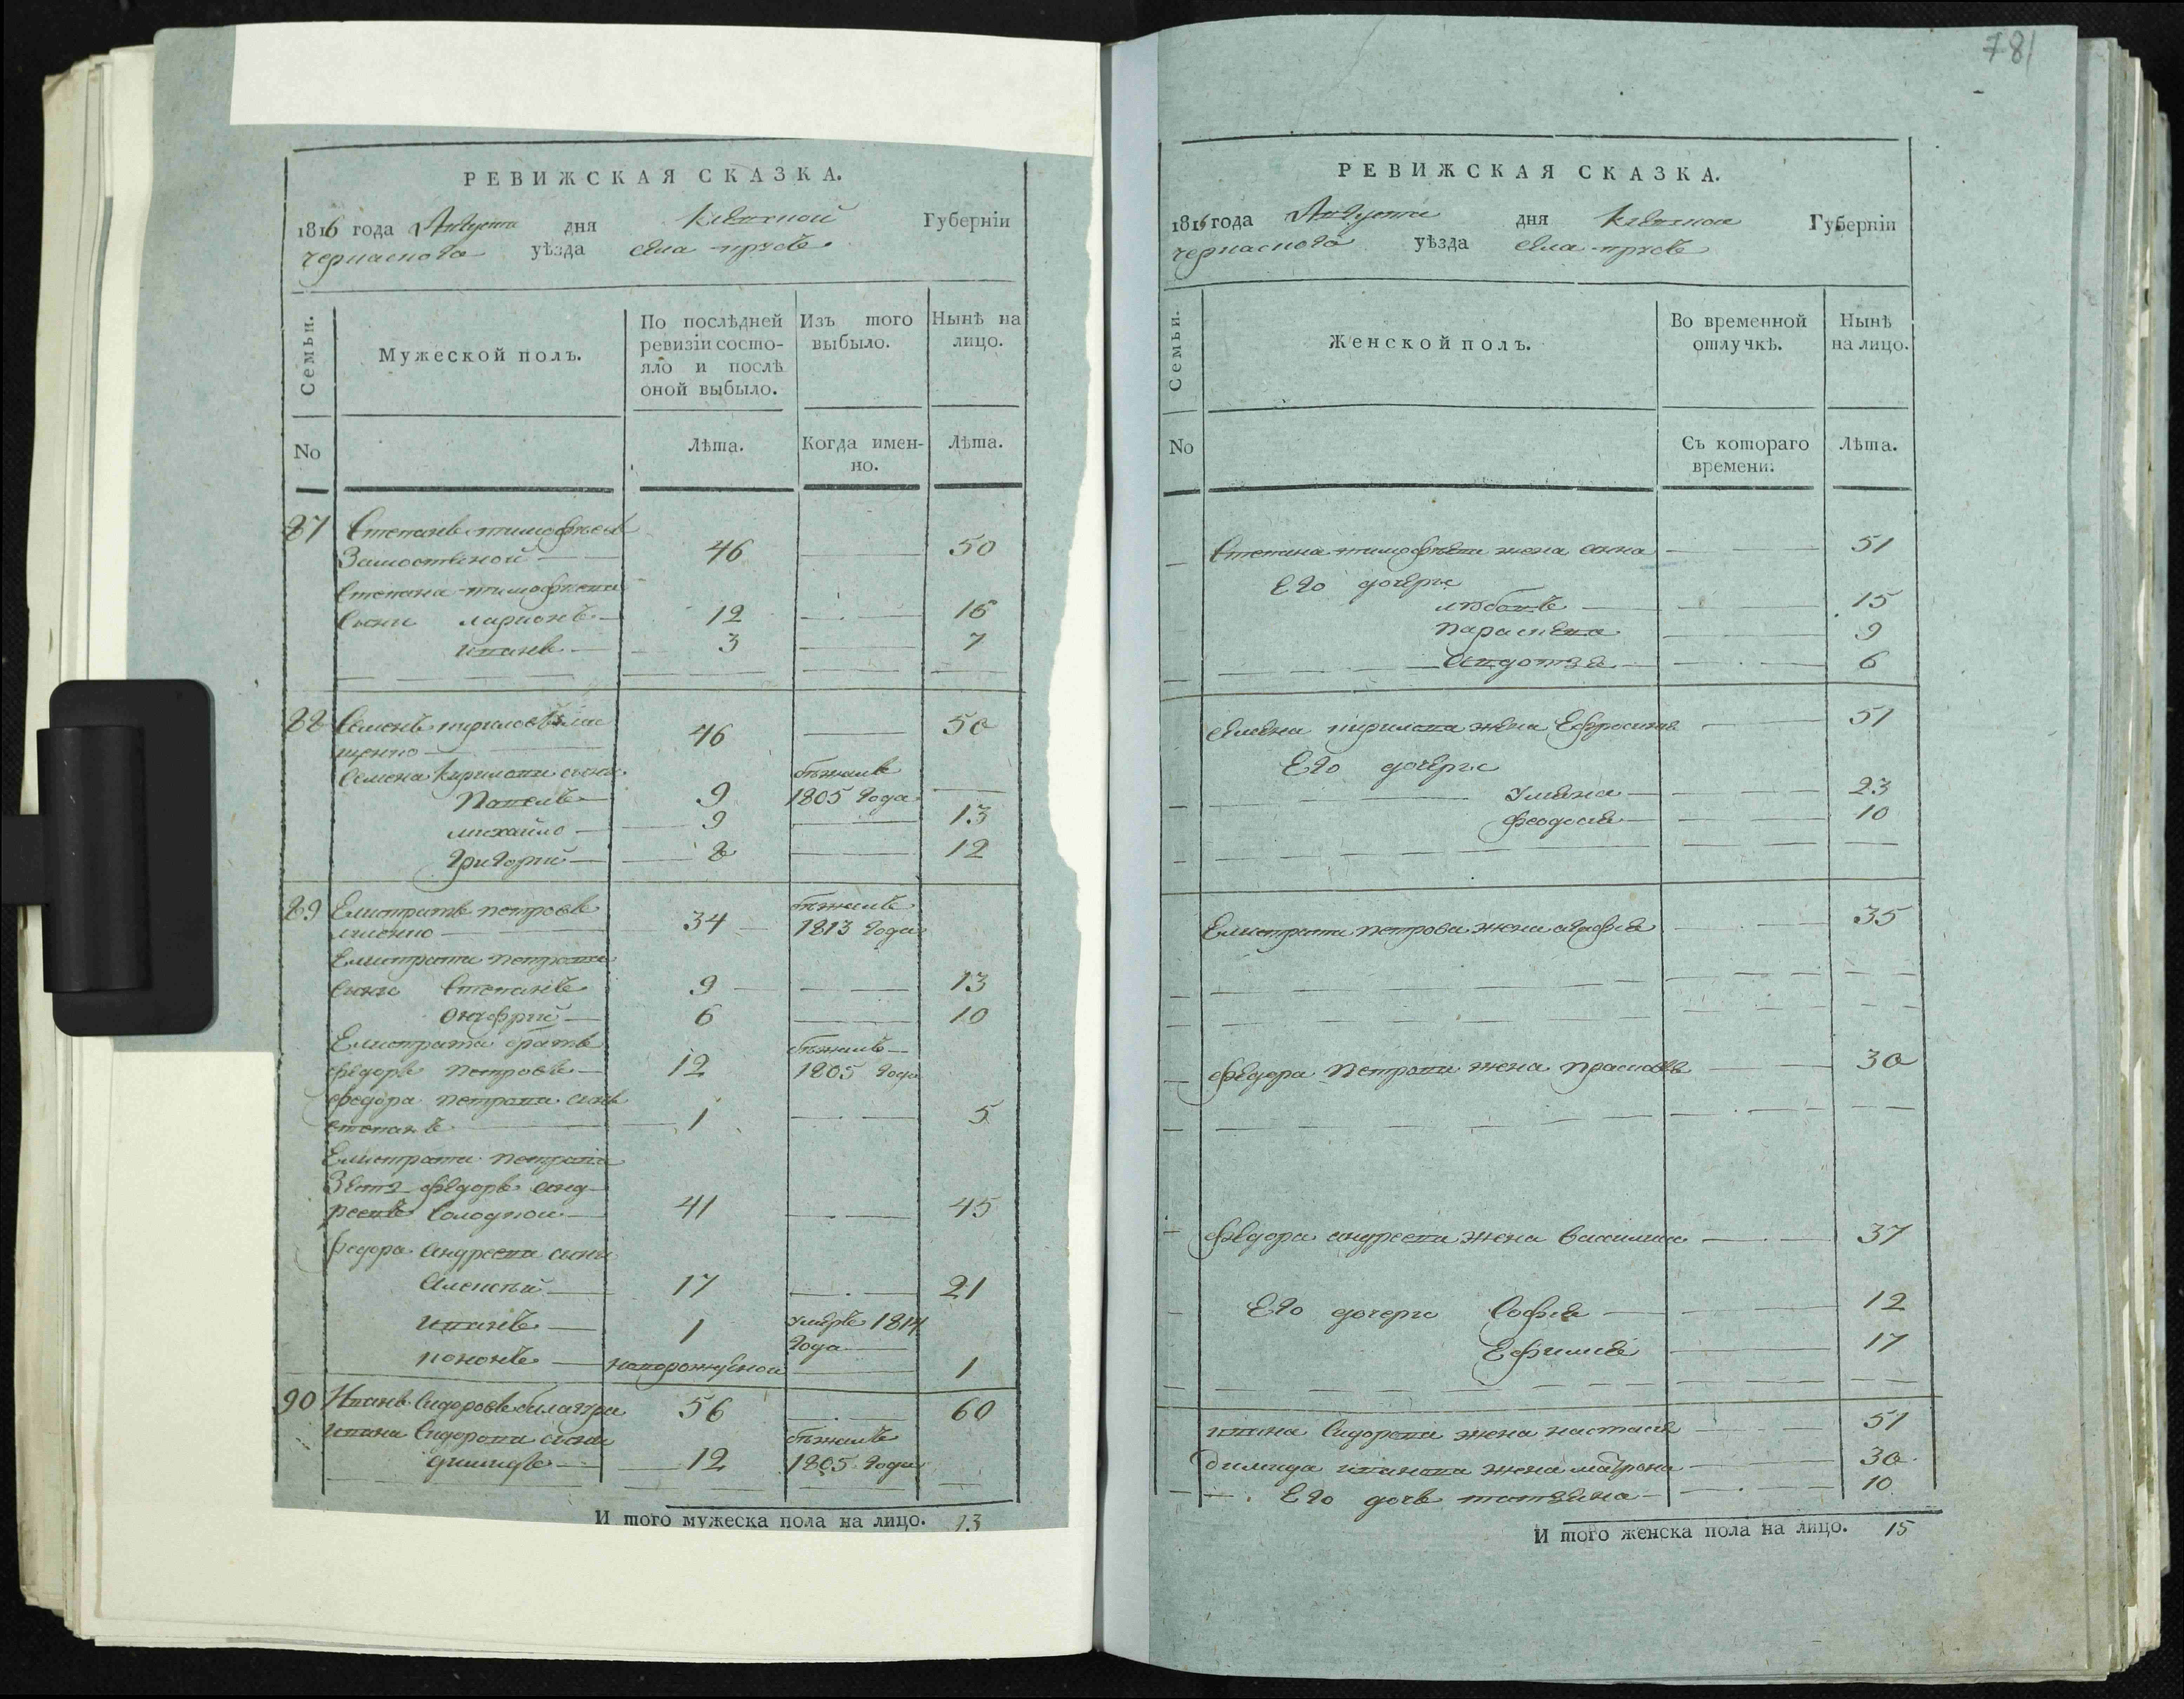 781
РЕВИЖСКАЯ СКАЗКА.
1816 года Августа дня Киевской Губерніи
черкаскога уѣзда села прусъ
Семьи.
Мужеской полъ.
По послѣдней ревизіи состояло и послѣ оной выбыло.
Изъ того выбыло.
Нынѣ на лицо.
No
Лѣта.
Когда именно.
Лѣта.
87 Степанъ тимофѣевъ
46 50
Степана тимофѣева
сыны ларионъ 12 16
иванъ 3 7
88 Семенъ кирилов
46 50
Семена Кирилова сыны
Павелъ 9 бѣжалъ 1805 года
михайло 9 13
григорий 8 12
89 Елистратъ петровъ
34 бѣжалъ 1813 года
Елистрата петрова
сыны Степанъ 9 13
Онуфрий 6 10
Елистрата братъ
федоръ петровъ 12 бѣжалъ 1805 года
федора петрова сынъ
степанъ 1 5
Елистрата петрова
Зеть федоръ анд-
реевъ Солодкой 41 45
федора андреева сыны
Алексѣй 17 21
иванъ 1 умеръ 1814 года
кононъ новорожденой 1
90 Иванъ Сидоровъ 56 60
ивана Сидорова сынъ
димидъ 12 бѣжалъ 1805 года
И того мужеска пола на лицо. 13
РЕВИЖСКАЯ СКАЗКА.
1816 года Августа дня Киевской Губерніи
черкаскога уѣзда села прусъ
Семьи.
Женской полъ.
Во временной отлучкѣ.
Нынѣ на лицо.
No
Съ котораго времени.
Лѣта.
Степана тимофѣева жена анна 51
Его дочери
любовь 15
Параскева 9
Авдотья 6
Семена кирилова жена Ефросиня 51
Его дочери
Улияна 23
феодосия 10
Елистрата петрова жена агафия 35
федора петрова жена прасковя 30
федора андреева жена василиса 37
Его дочери София 12
Ефимия 17
ивана Сидорова жена настасия 51
димида иванова жена матрона 30
Его дочь татияна 10
И того женска пола на лицо. 15